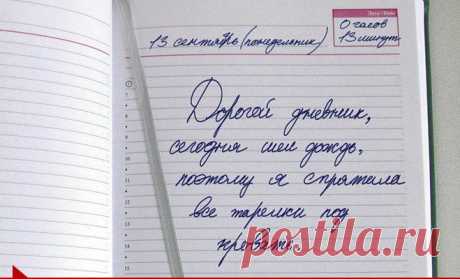 13 сентябрь (понедельник)
0 часов
13 минут
Дорогой дневник,
сегодня шел дождь,
поэтому я спрятала
все тарелки под
кровать.
postila.ru